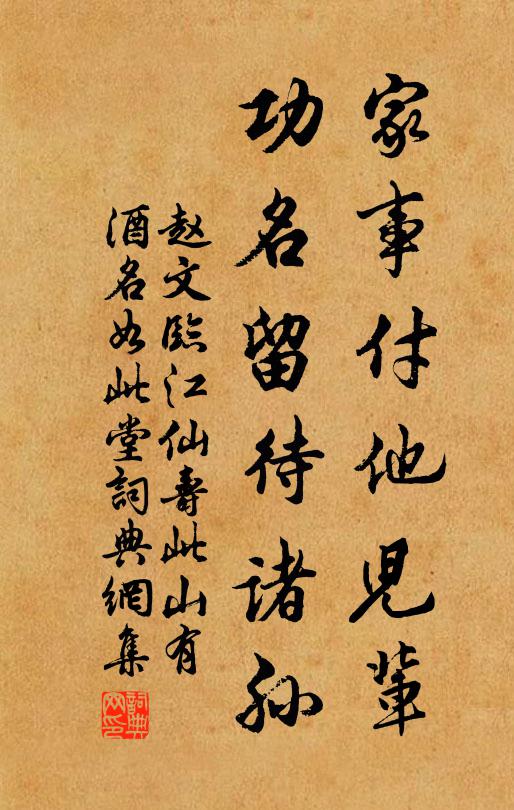 家事付他児輩
功名留待諸孙
赵文臨江仙壽此山有
酒名如此堂詞典網集
詞典网印